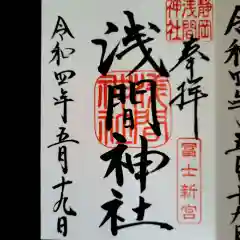 奉拝
静岡浅間神社
冨士新宮
浅間神社
令和四年五月十九日